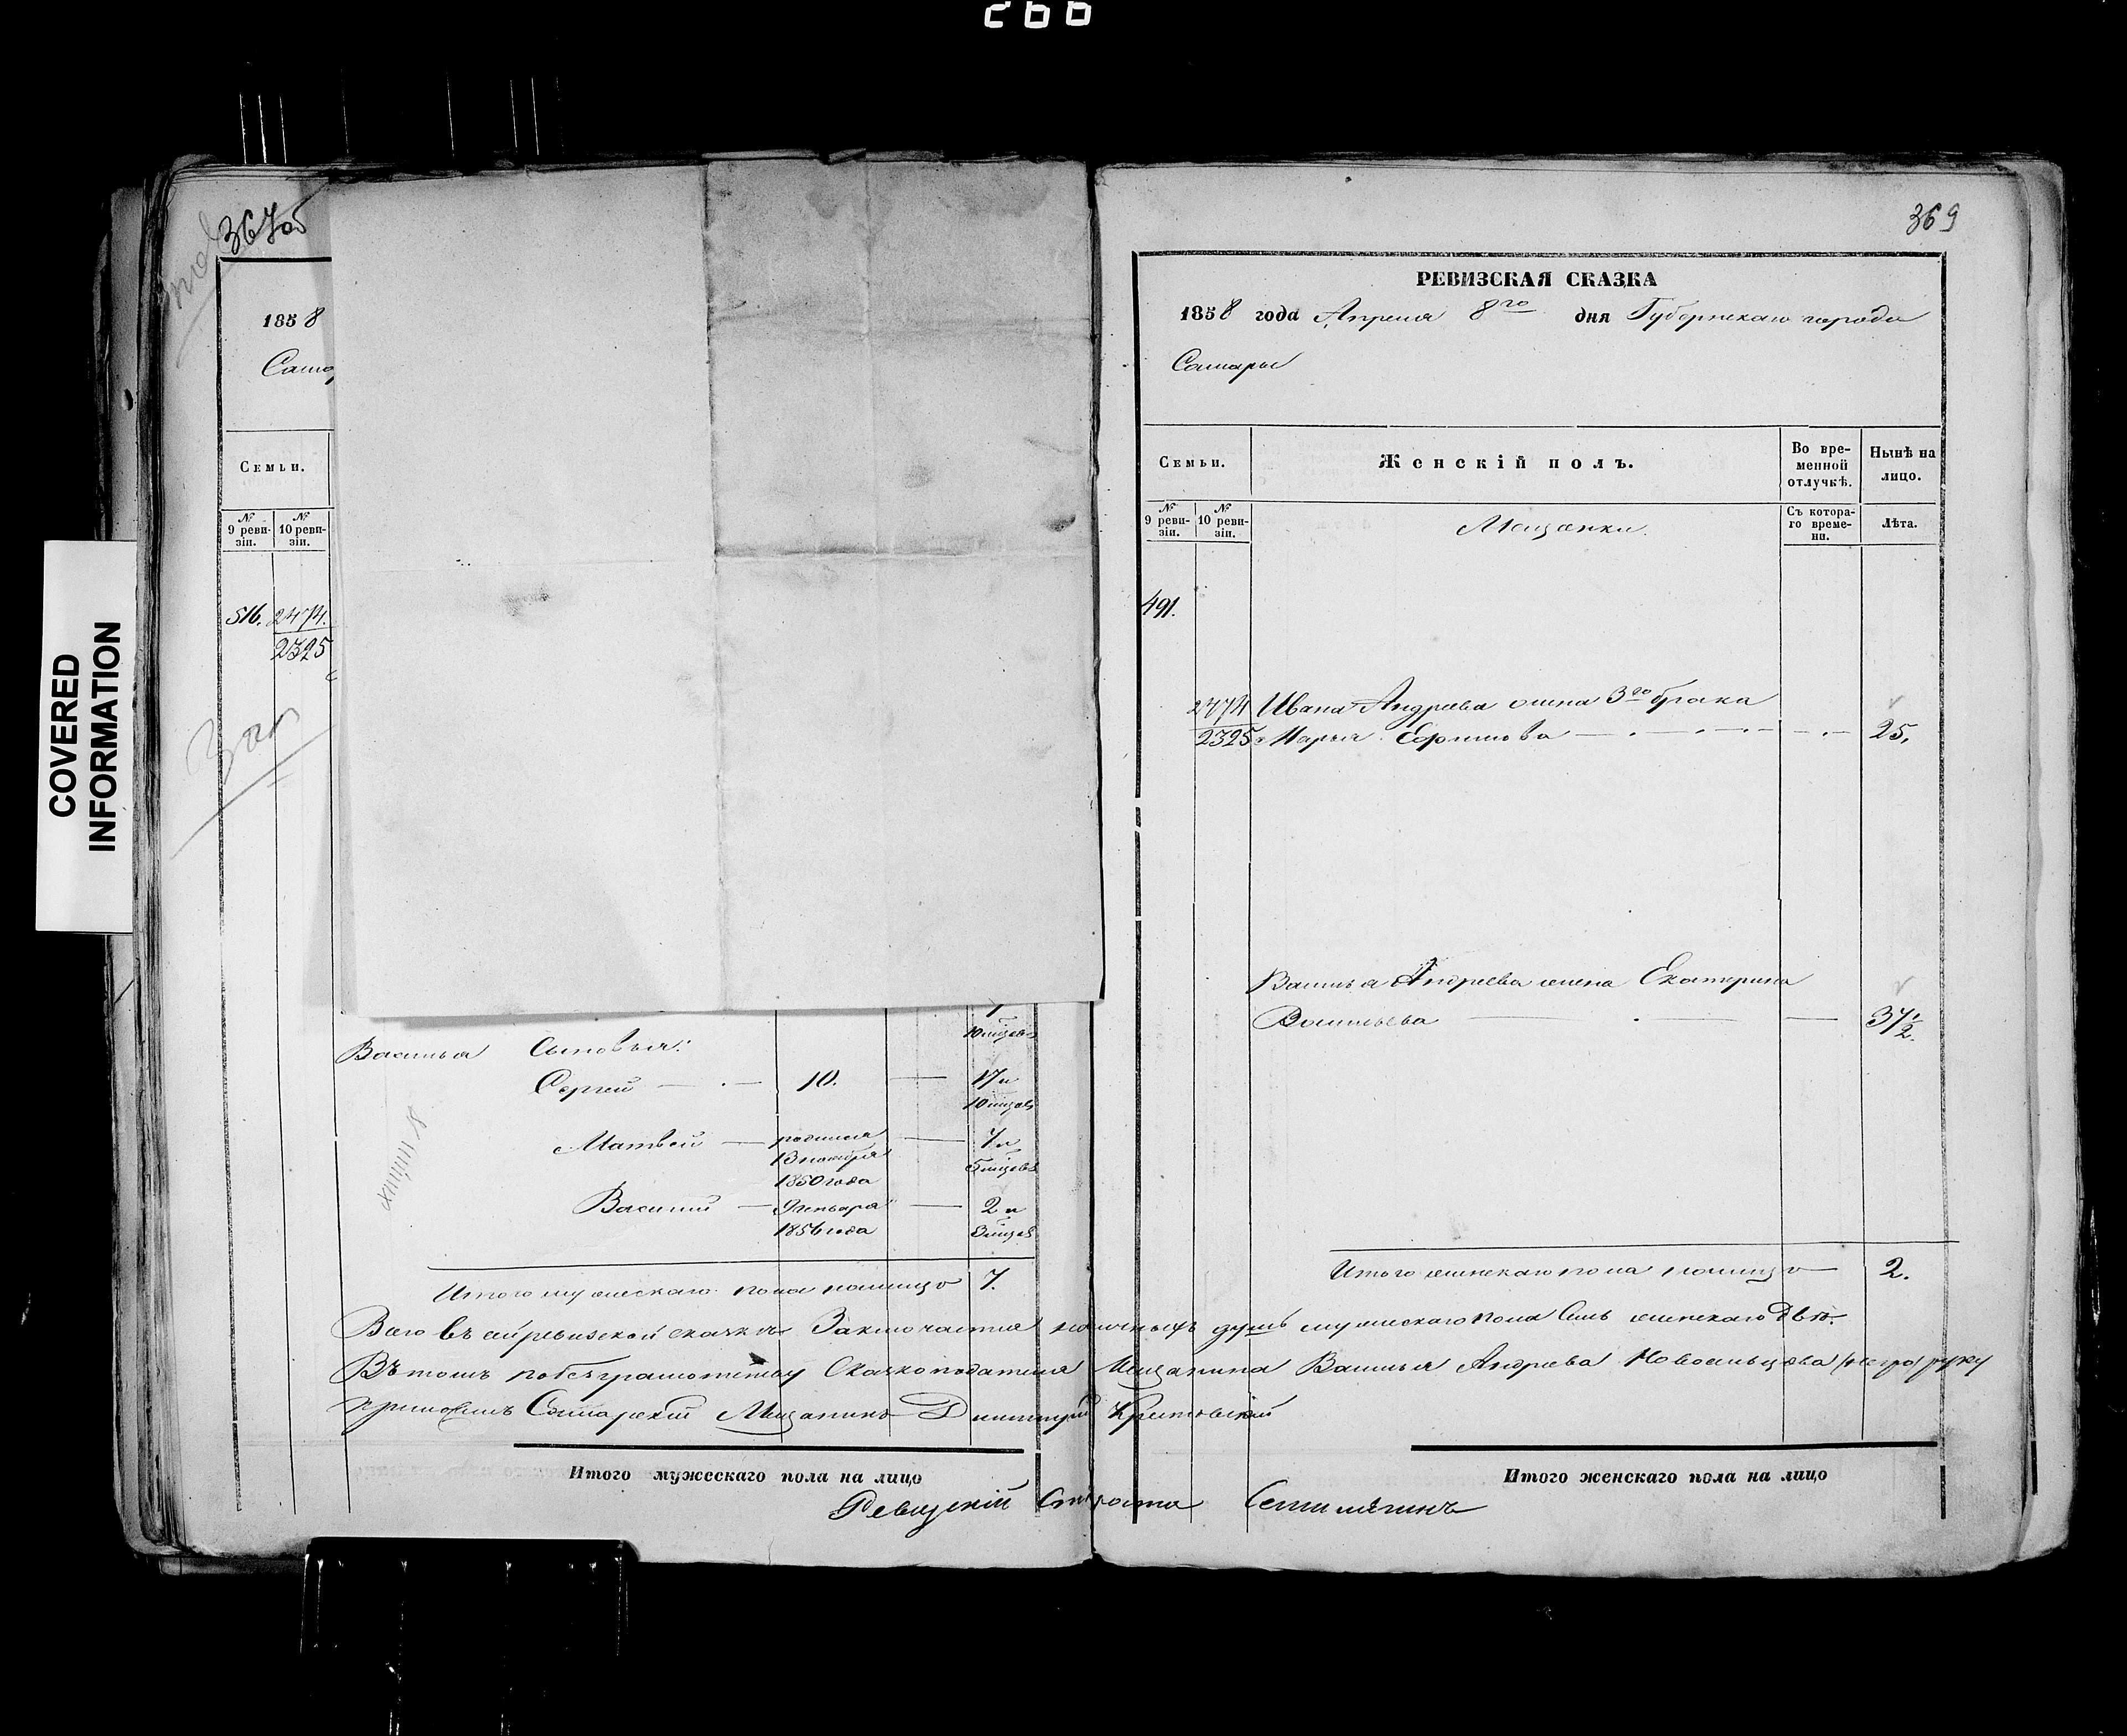 266
367об
1858
Само
Семьи.
№ 9 ревизіи.
№ 10 ревизіи.
516. 2474.
2325
COVERED INFORMATION
10 мцевъ
Василья Сыновья:
Сергей — 10. — 17 и
10 мцевъ
Матвей — родился — 7 и
13 ноября 5 мцевъ
1850 года
Василий — Генваря — 2 и
1856 года 3 мцев
Итого мужескаго пола налицо 7.
369
РЕВИЗСКАЯ СКАЗКА
1858 года Апреля 8го дня Губернскаго города
Самары
Семьи.
Женскій полъ.
Во временной отлучкѣ.
Нынѣ на лицо.
№ 9 ревизіи.
№ 10 ревизіи.
Мещанки.
Съ котораго времени.
Лѣта.
491.
2474 Ивана Андреева жена 3го брака
2325 Марья Ефимова — 25.
Василья Андреева жена Екатерина
Васильева — 37 1/2.
Итого женскаго пола налицо — 2.
Всего въ сей ревизской сказкѣ Заключается наличныхъ душъ мужескаго пола Семь женскаго Двѣ.
Въ томъ по безграмотству Сказкоподателя Мещанина Василья Андреева Новосильцова руку
приложилъ Самарскій Мещанинъ Дмитрий
Итого мужескаго пола на лицо
Итого женскаго пола на лицо
Ревизскій Староста